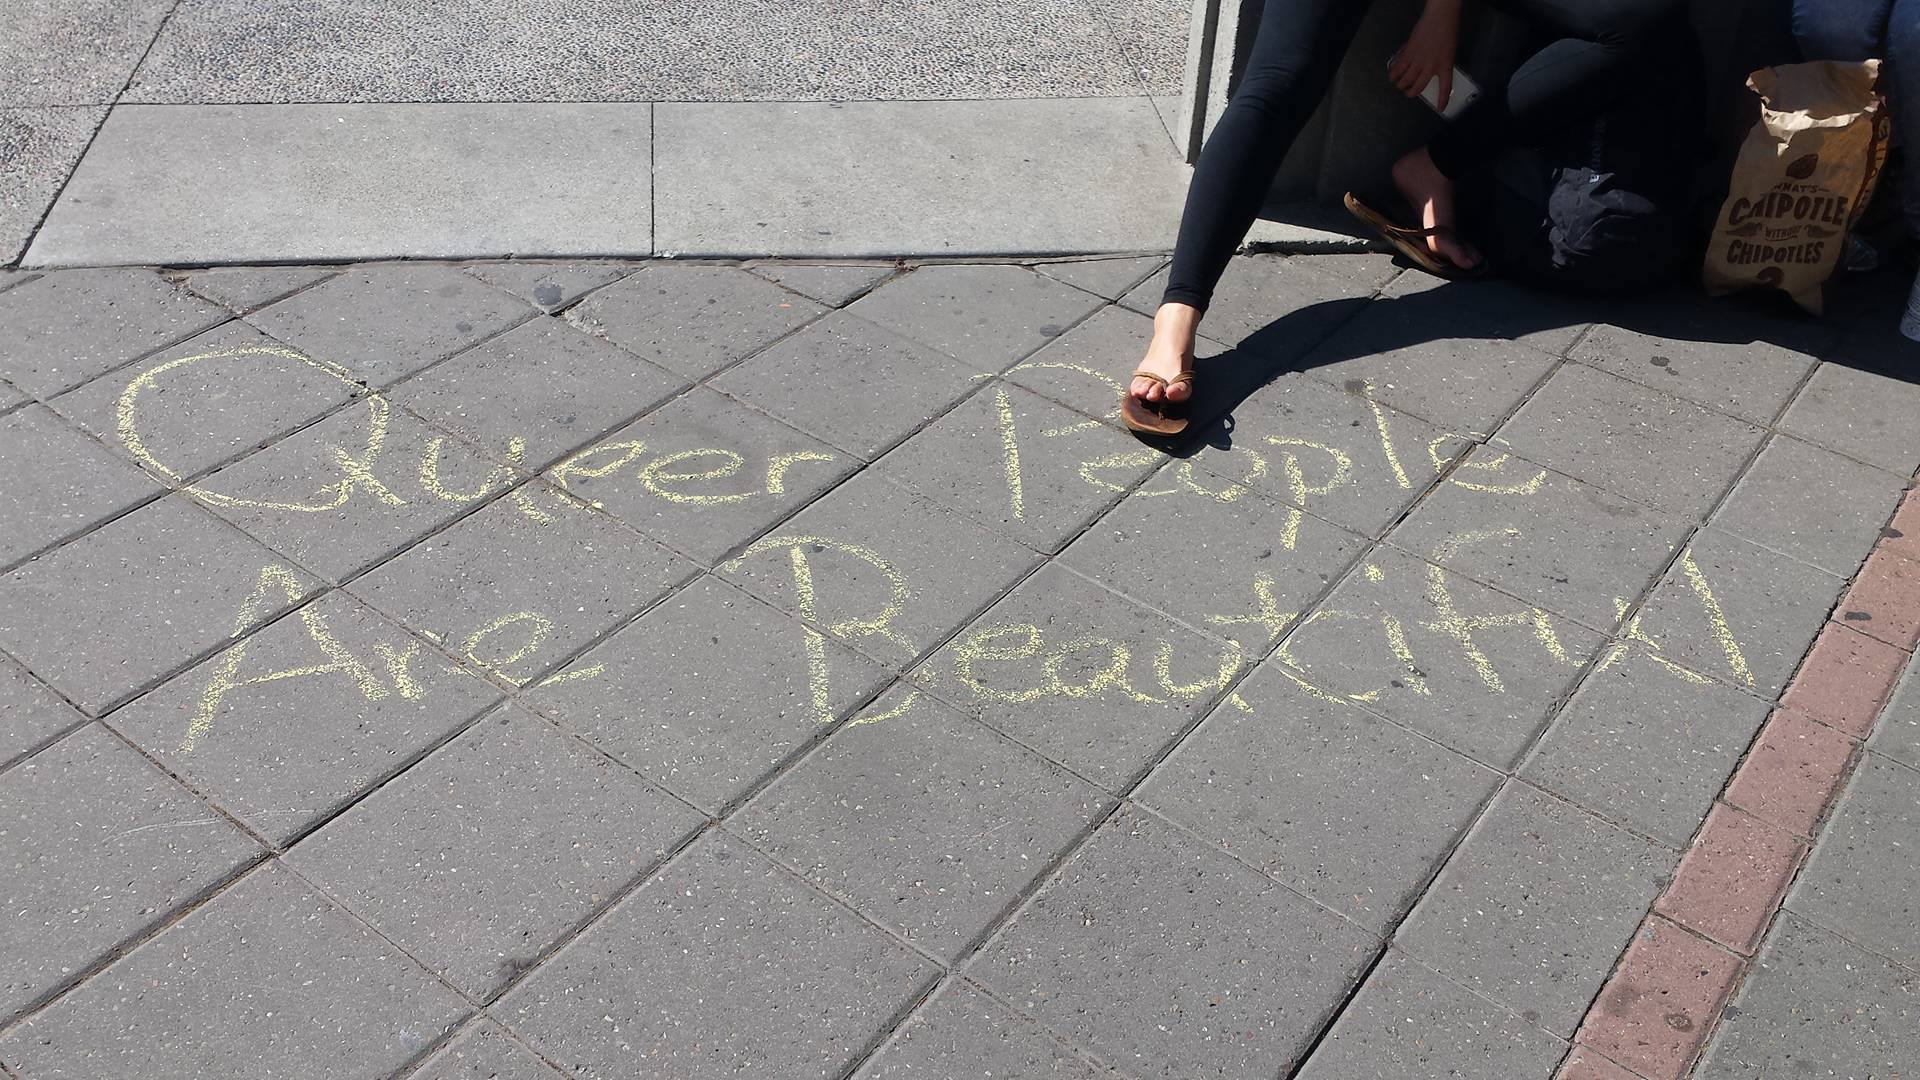 Queer People
Are Beautiful
WHAT'S
CHIPOTLE
WITHOUT
CHIPOTLES
?